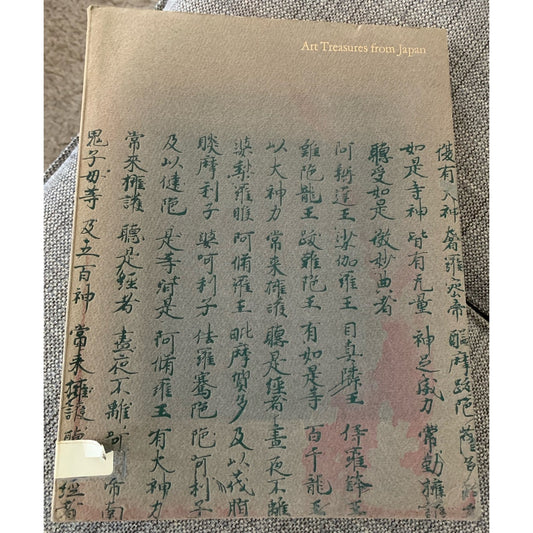 Art Treasures from Japan
復有大神 奢羅蜜帝 醯摩跋陀 薩
如是等神 皆有无量 神足威力 常勤擁護
聽受如是 微妙典者
阿耨達王 娑伽羅王 目真隣王 伊羅鉢王
難陀龍王 跋難陀王 有如是等 百千龍王
以大神力 常來擁護 聽是經者 晝夜不離
婆利羅睺 阿脩羅王 毗摩質多 及以茂脂
睒摩利子 婆呵利子 佉羅騫陀 陀阿利子
及以揵陀 是等皆是 阿脩羅王 有大神力
常來擁護 聽是經者 晝夜不離 訶 帝南
鬼子母等 及五百神 常來擁護 聽 經者